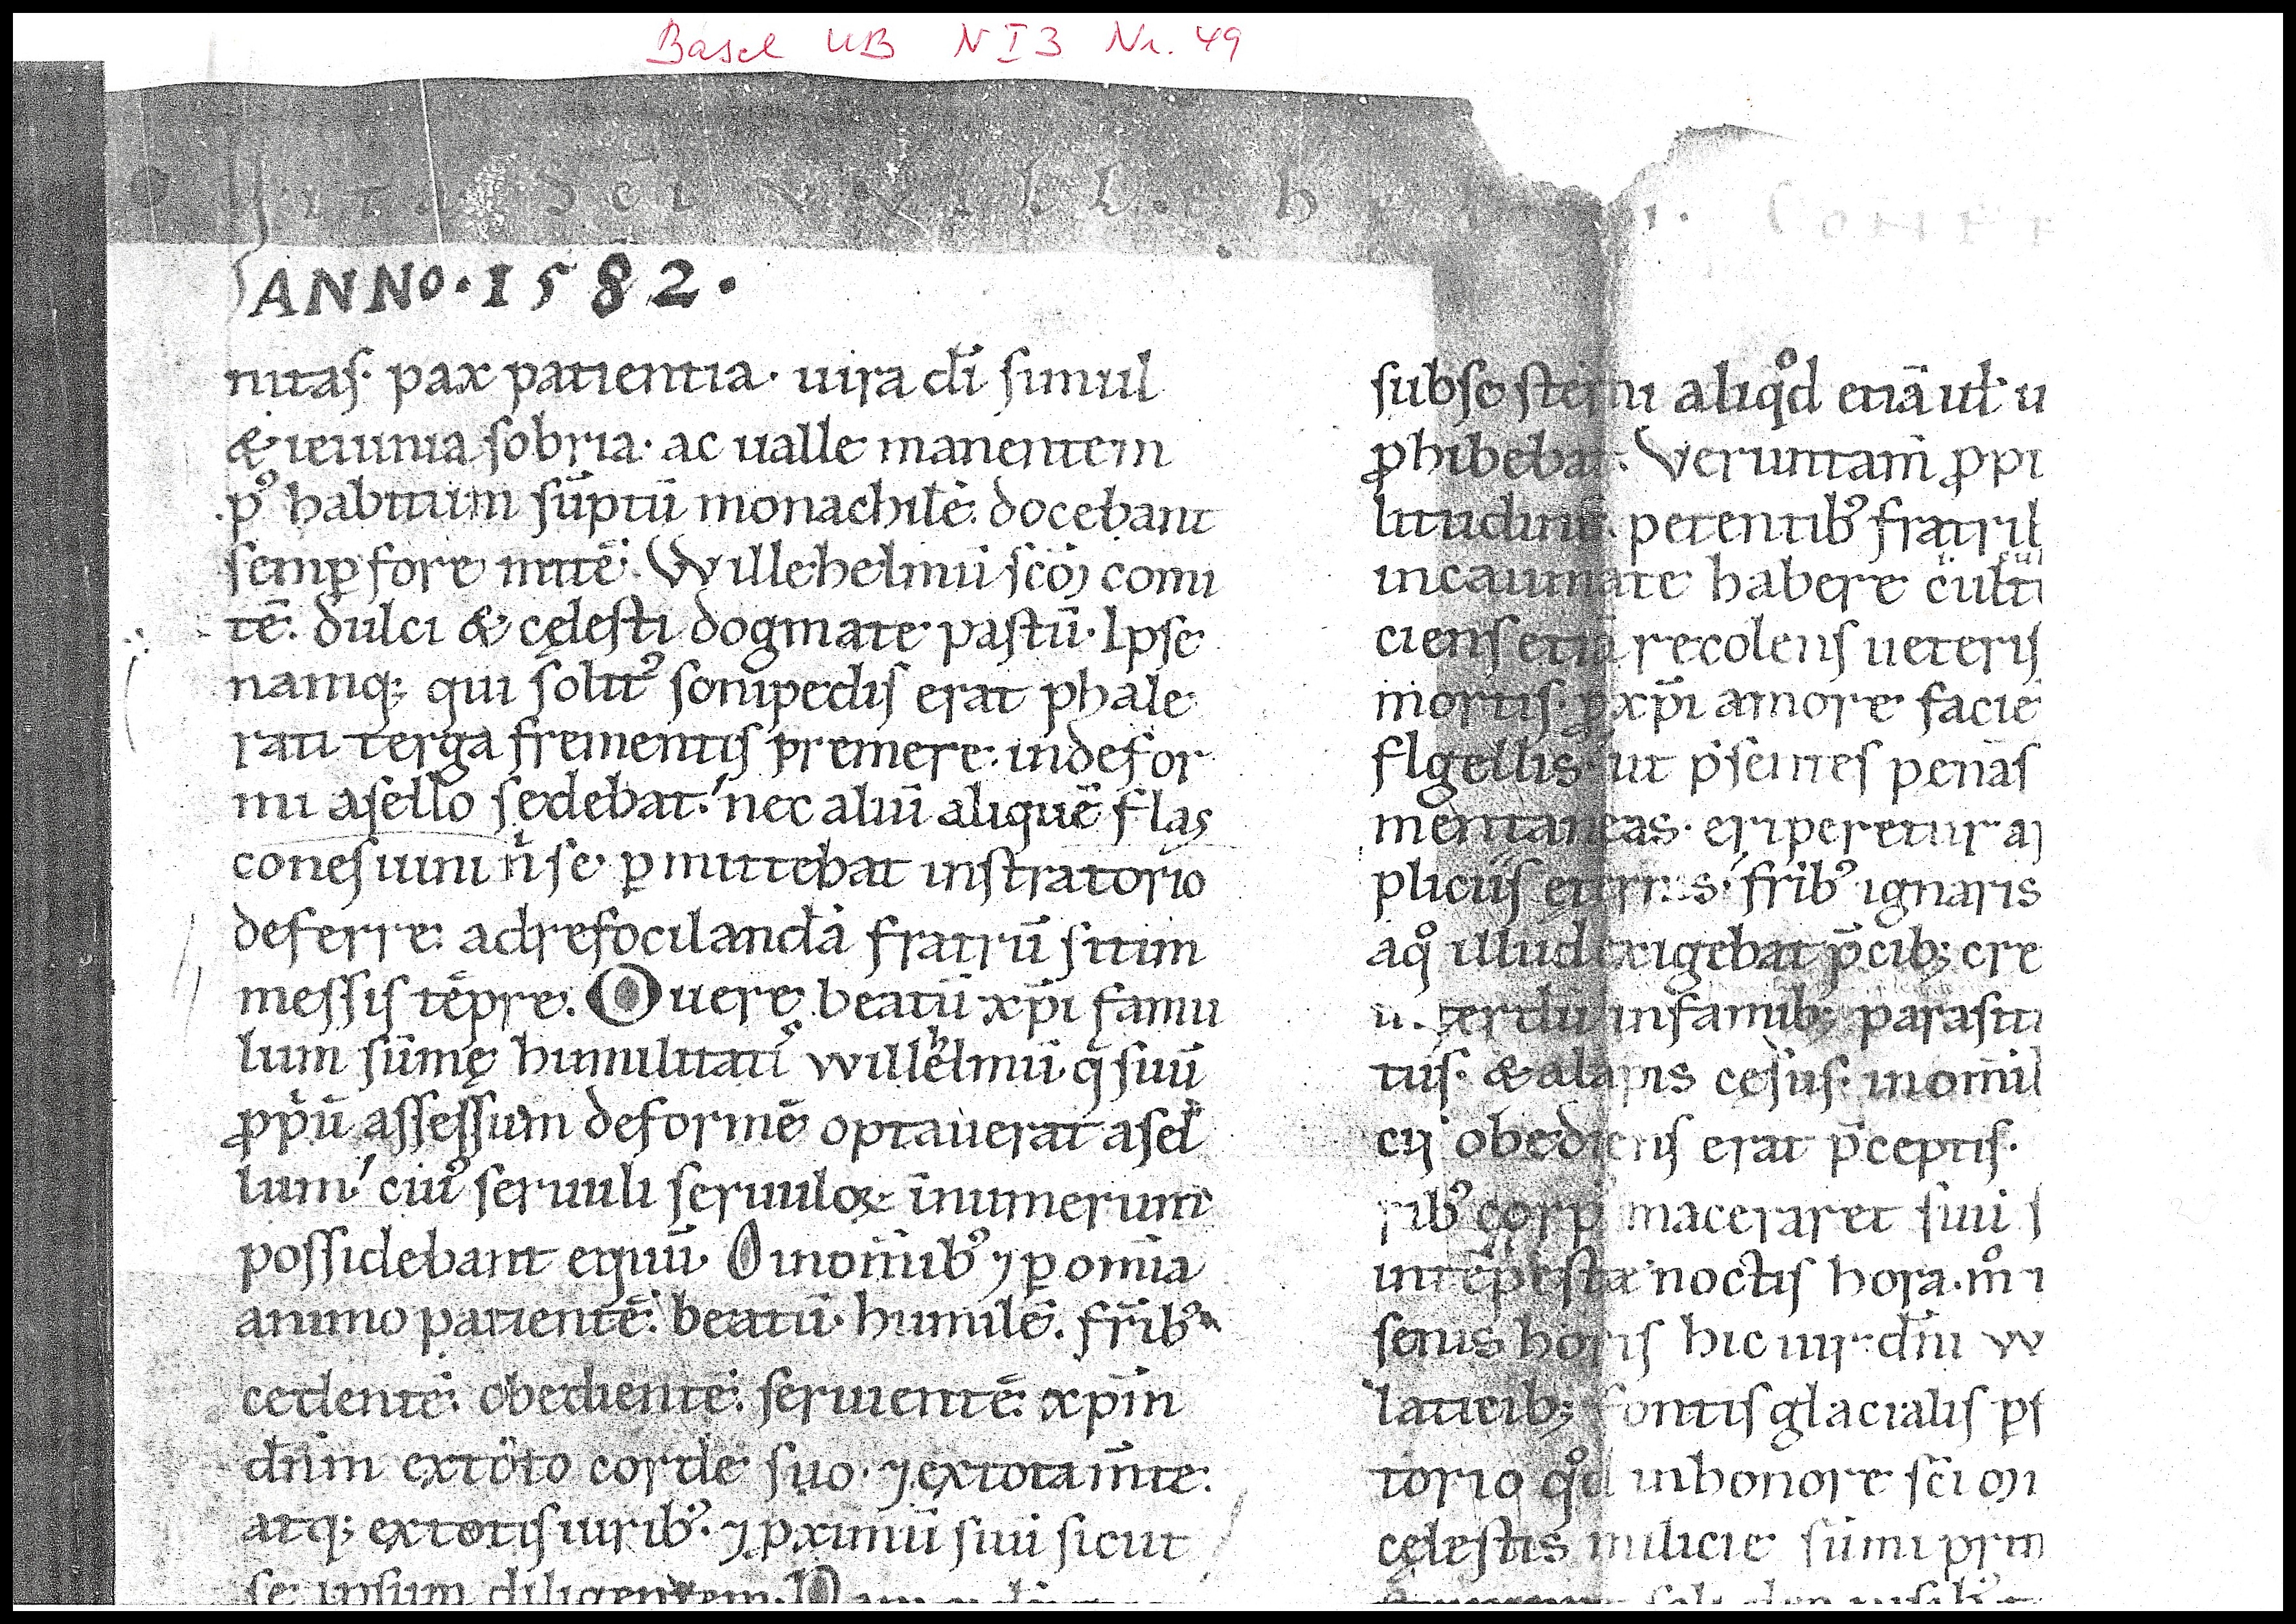 Basel UB N I 3 Nr. 49
Vita Sci
ANNO · 1582 ·
nitaſ· pax patientia· uira dī ſimul
& ieiunia ſobria· ac ualle manentem
pꝰ habitum sūptū monachilē. docebant
ſemꝑ fore mitē. Willehelmū ſcōꝝ comi
tē. dulci & cęleſti dogmate paſtū· Ipſe
namq; qui ſolitꝰ ſonipedis erat phale
rati terga frementiſ premere. indefor
mi aſello ſedebat. nec aliū aliquē flaſ
coneſ uini n̄ ſe ꝑmittebat inſtratorio
deferre. adrefocilandā fratrū ſitim
meſſiſ tēpre. O uere beatū xp̄i famu
lum sūmę humilitatiſ willehelmū· q̄ ſuū
ꝓpiū aſſeſſum deformē optauerat aſel
lum. cuiꝰ ſeruuli ſeruuloꝝ īnumerum
poſſidebant equū· O inom̄ibꝰ ⁊ ꝑ omīa
animo patientē. beatū· humilē. fr̄ibꝰ
cedentē. obedientē. ſeruientē. xp̄m
dn̄m extoto corde ſuo· ⁊ extota m̄te.
atq; extotiſ uiribꝰ. ⁊ ꝓximū ſui ſicut
ſe ipſum diligentem.
ſubſe ſterni aliqͦd etiā ul' u
ꝓhibebat. Veruntam̄ ꝓpi
litudiniſ petentibꝰ fratrib
incaumate habere cult
cienſ etiā recolenſ ueteriſ
mortiſ· ꝓ xp̄i amore facie
flgelliſ ut p̄ſenteſ penaſ
mentaneas. eriperetur a
pliciiſ fr̄ibꝰ ignaris
aqͦ illud exigebat p̄cib; cre
infamib; paraſiti
tuſ· & alapis ceſuſ· inom̄ib
cij obedienſ erat p̄ceptiſ·
ribꝰ corpꝰ maceraret ſui ſ
intēpeſtæ noctiſ hora· mͦ i
ſenis horiſ hic uir dn̄i w
laticib; fontiſ glacialiſ pſ
torio qͦd inhonore ſc̄i om
cęleſtis milicie sūmi prin